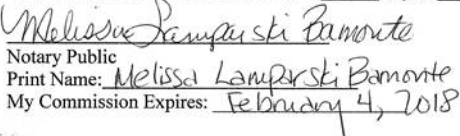 Melissa Lamparski Bamonte
Notary Public
Print Name: Melissa Lamparski Bamonte
My Commission Expires: February 4, 2018